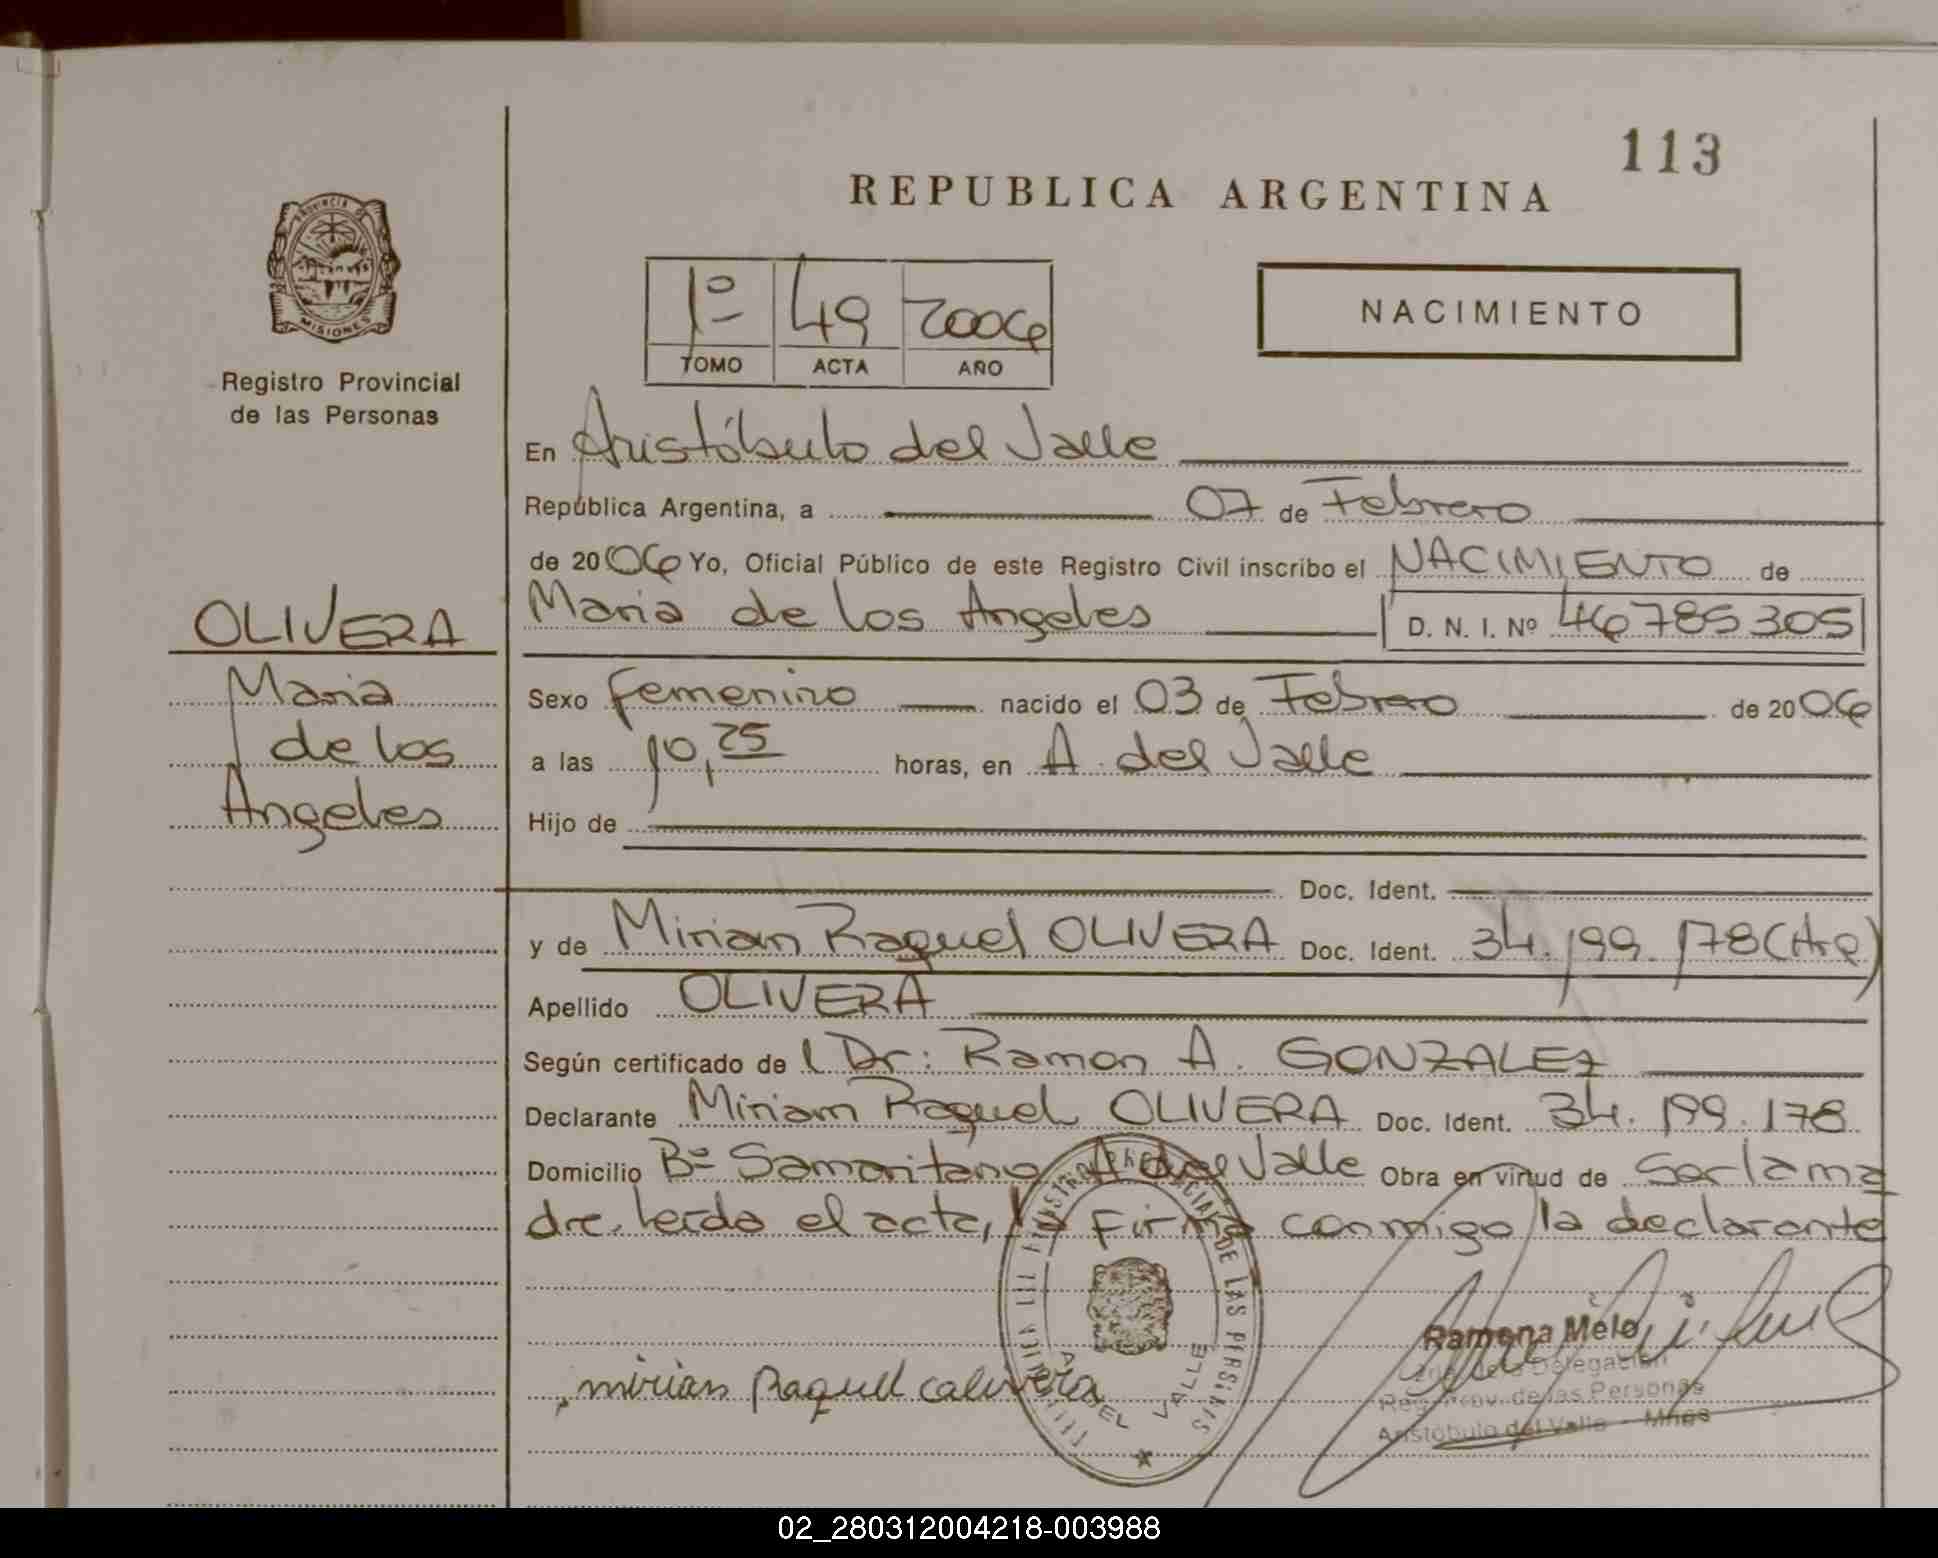 113
REPUBLICA ARGENTINA
PROVINCIA DE
MISIONES
Registro Provincial
de las Personas
1º 49 2006
TOMO ACTA AÑO
NACIMIENTO
En Aristóbulo del Valle
República Argentina, a 07 de Febrero
de 2006 Yo, Oficial Público de este Registro Civil inscribo el NACIMIENTO de
Maria de los Angeles D. N. I. Nº 46785305
OLIVERA
Maria
de los
Angeles
Sexo femenino nacido el 03 de Febrero de 2006
a las 10,25 horas, en A. del Valle
Hijo de
Doc. Ident.
y de Miriam Raquel OLIVERA Doc. Ident. 34.199.178 (Arg)
Apellido OLIVERA
Según certificado de l Dr: Ramon A. GONZALEZ
Declarante Miriam Raquel OLIVERA Doc. Ident. 34.199.178
Domicilio Bº Samaritano A del Valle Obra en virtud de Ser la ma
dre. Leida el acta, la Firma conmigo la declarante
DE LAS PERSONAS
A. DEL VALLE
mirian Raquel
Ramona Melo
Delegación
Reg. Prov. de las Personas
Aristóbulo del Valle - Mnes
02_280312004218-003988